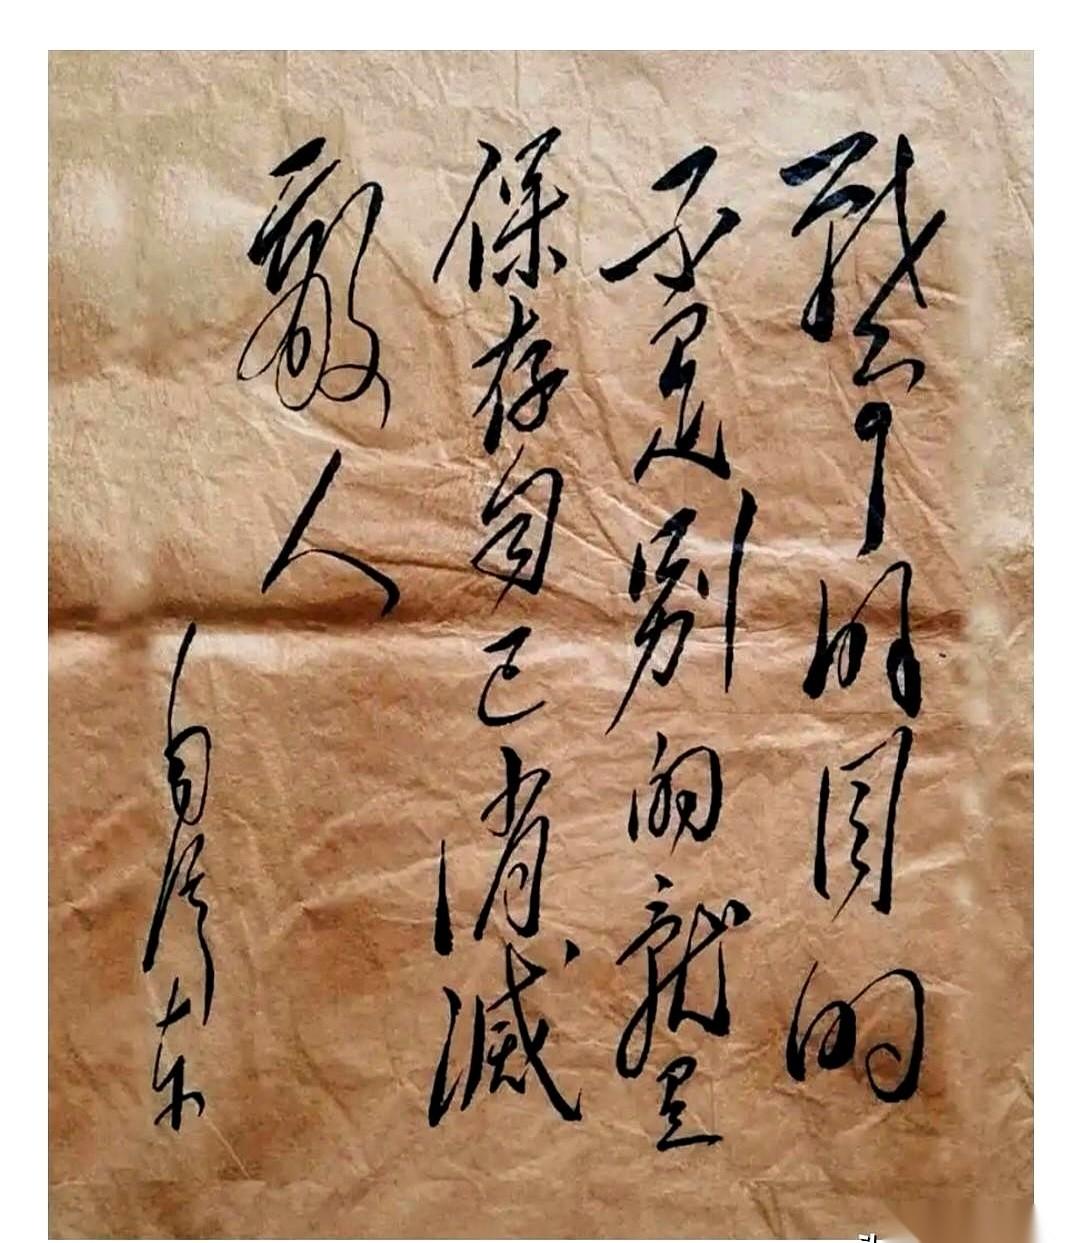 战争的目的
不是别的就是
保存自己消滅
敵人
毛澤东